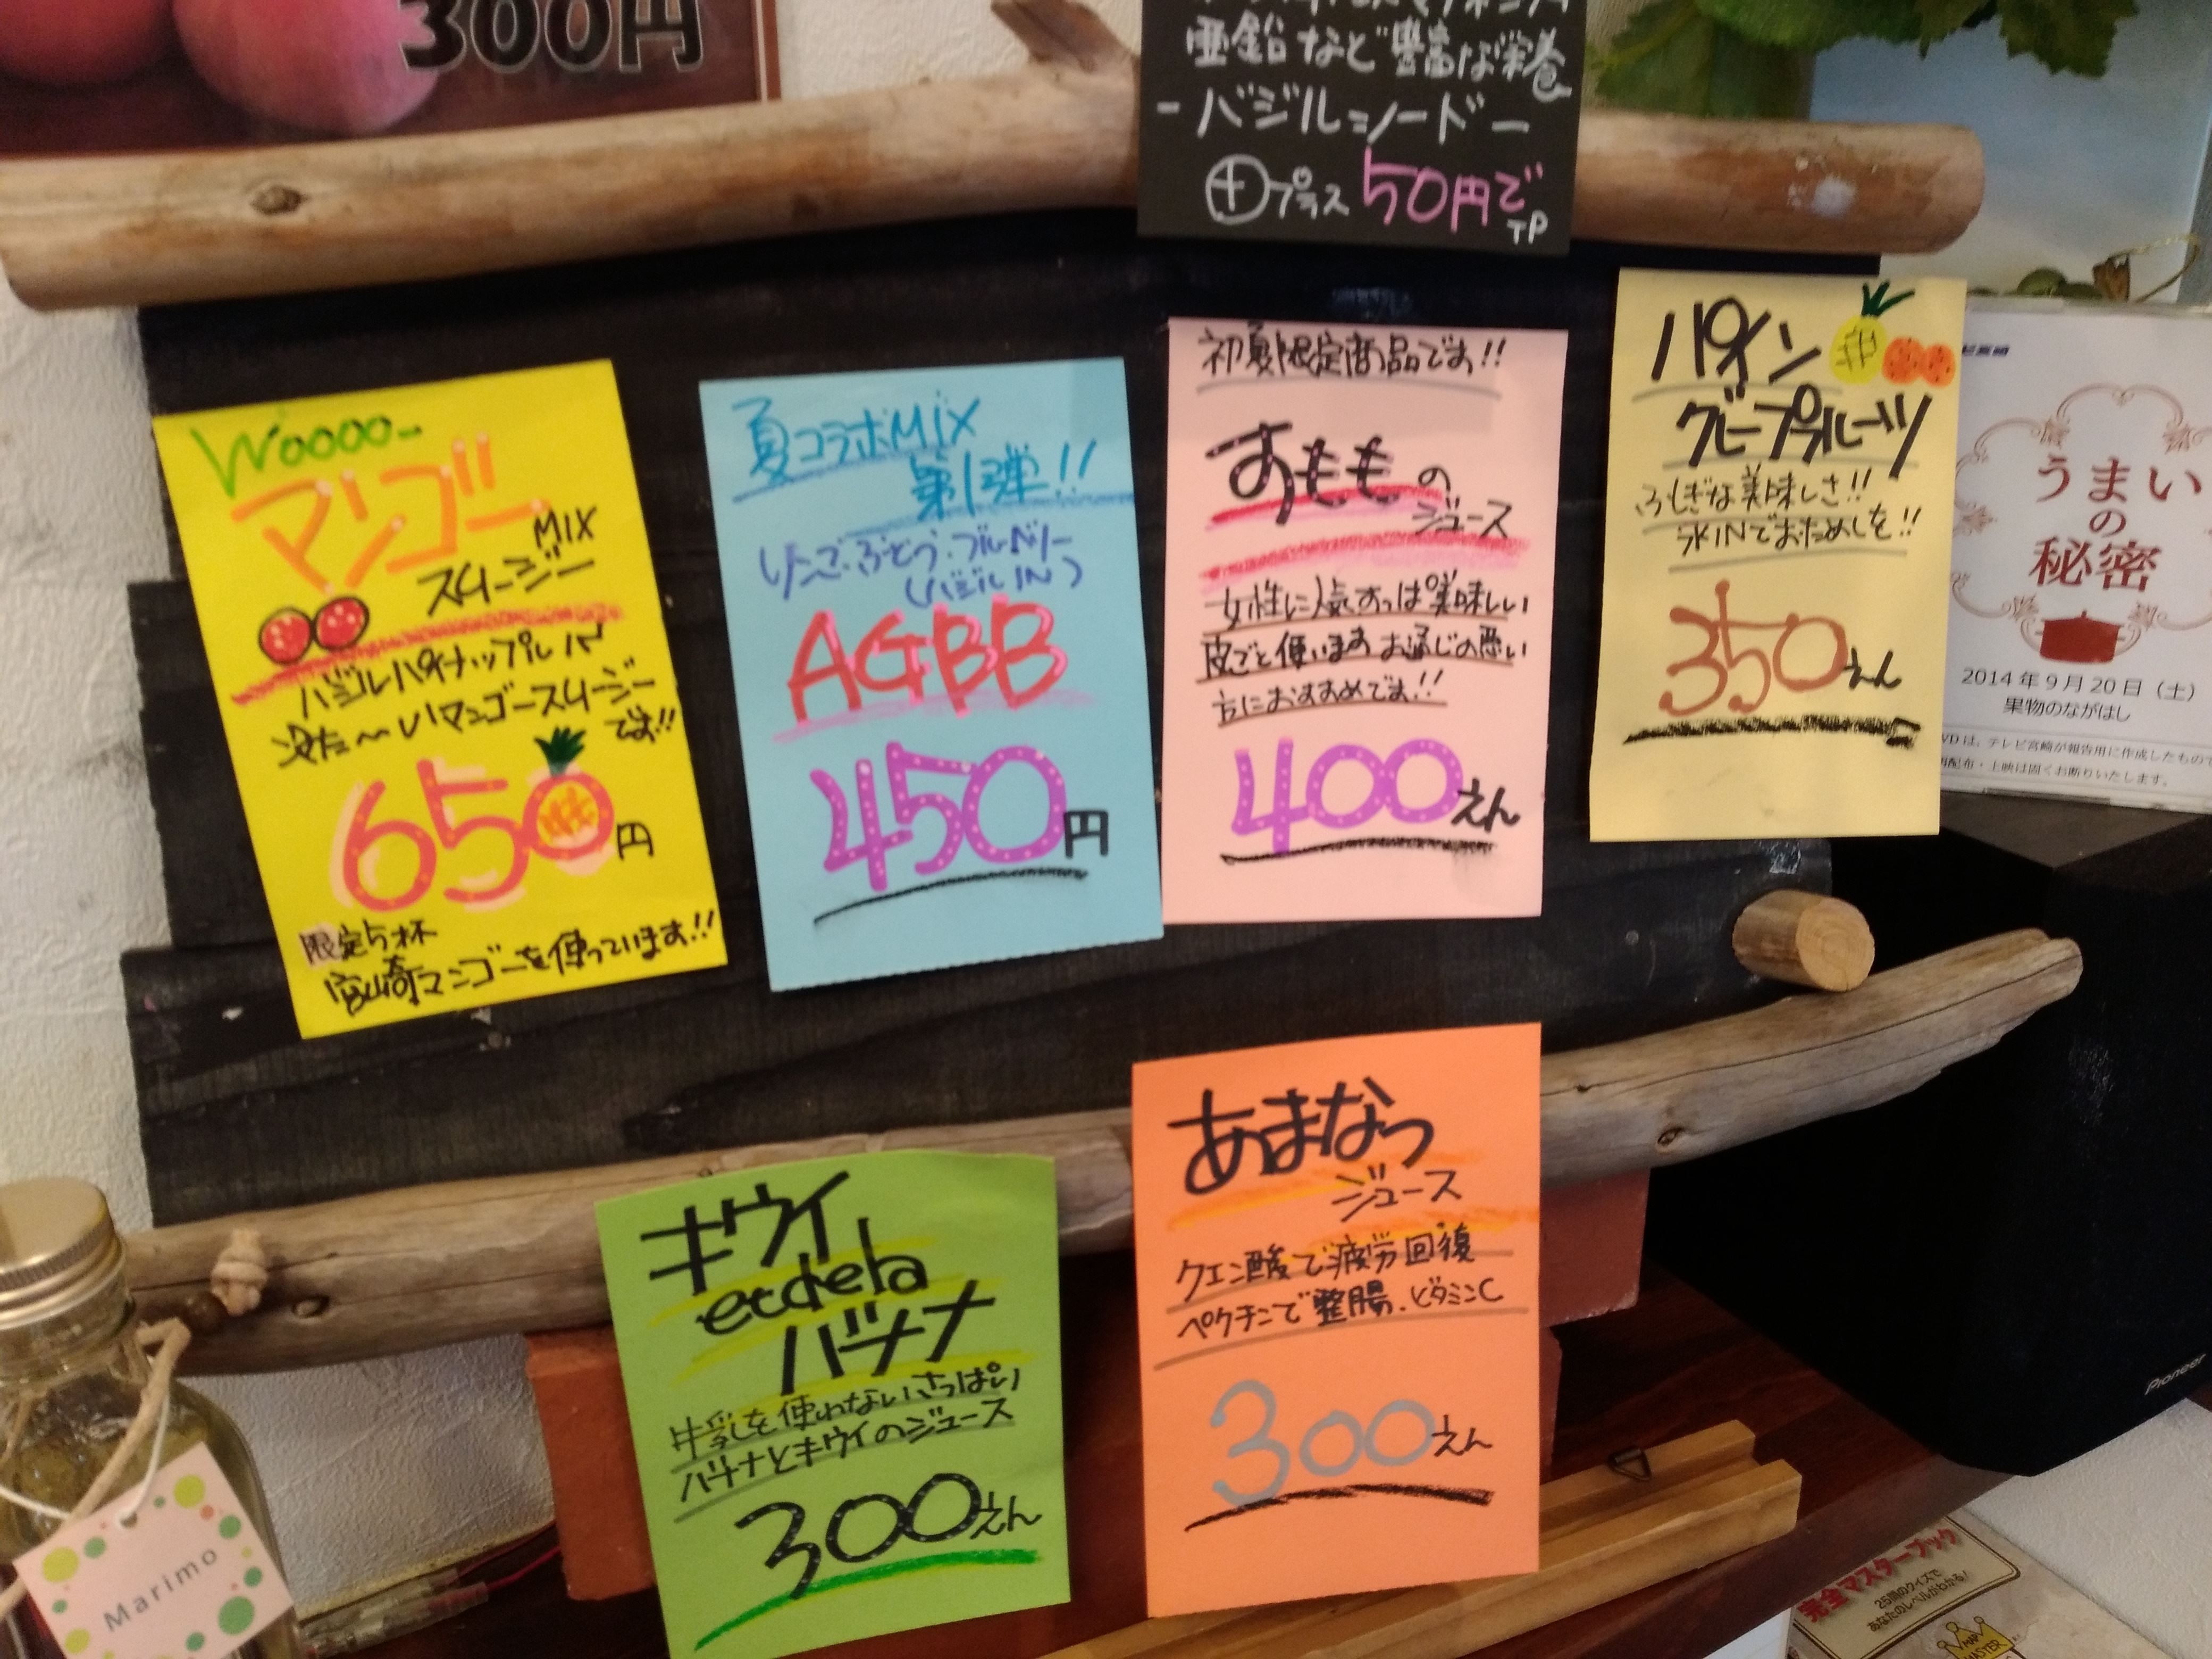 300円
亜鉛など豊富な栄養
-バジルシード-
⊕プラス50円で
TP
Woooo-
マンゴー
MIX
スムージー
バジルパイナップル
冷た〜いマンゴースムージー
です!!
650円
限定5杯
宮崎マンゴーを使っています!!
夏コラボMIX
第1弾!!
りんご・ぶどう・ブルーベリー
(バジルIN)
AGBB
450円
初夏限定商品です!!
すももの
ジュース
女性に人気すっぱ美味しい
皮ごと使います お通じの悪い
方におすすめです!!
400えん
パイン
グレープフルーツ
ふしぎな美味しさ!!
氷INでおためしを!!
350えん
うまい
の
秘密
2014年9月20日(土)
果物のながはし
VDは、テレビ宮崎が報告用に作成したもので
配布・上映は固くお断りいたします。
キウイ
etdela
バナナ
牛乳を使わないさっぱり
バナナとキウイのジュース
300えん
あまなつ
ジュース
クエン酸で疲労回復
ペクチンで整腸.ビタミンC
300えん
Pioneer
Marimo
完全マスターブック
25問のクイズで
あなたのレベルがわかる!
MAP
MASTER